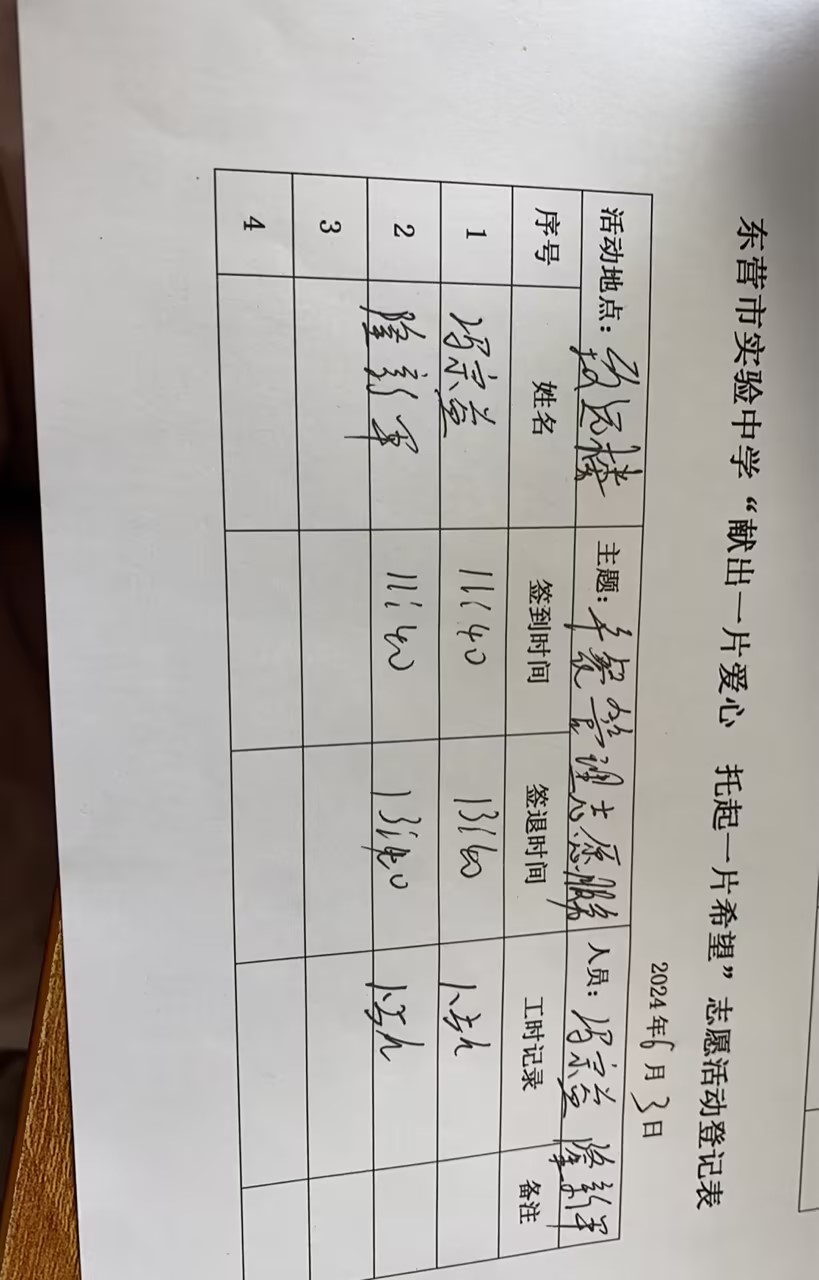 东营市实验中学“献出一片爱心 托起一片希望”志愿活动登记表
2024年6月3日
活动地点： 主题：午餐管理志愿服务 人员：冯宗益 隆新军
序号 姓名 签到时间 签退时间 工时记录 备注
1 冯宗益 11:40 13:40 1.5h
2 隆新军 11:40 13:40 1.5h
3
4